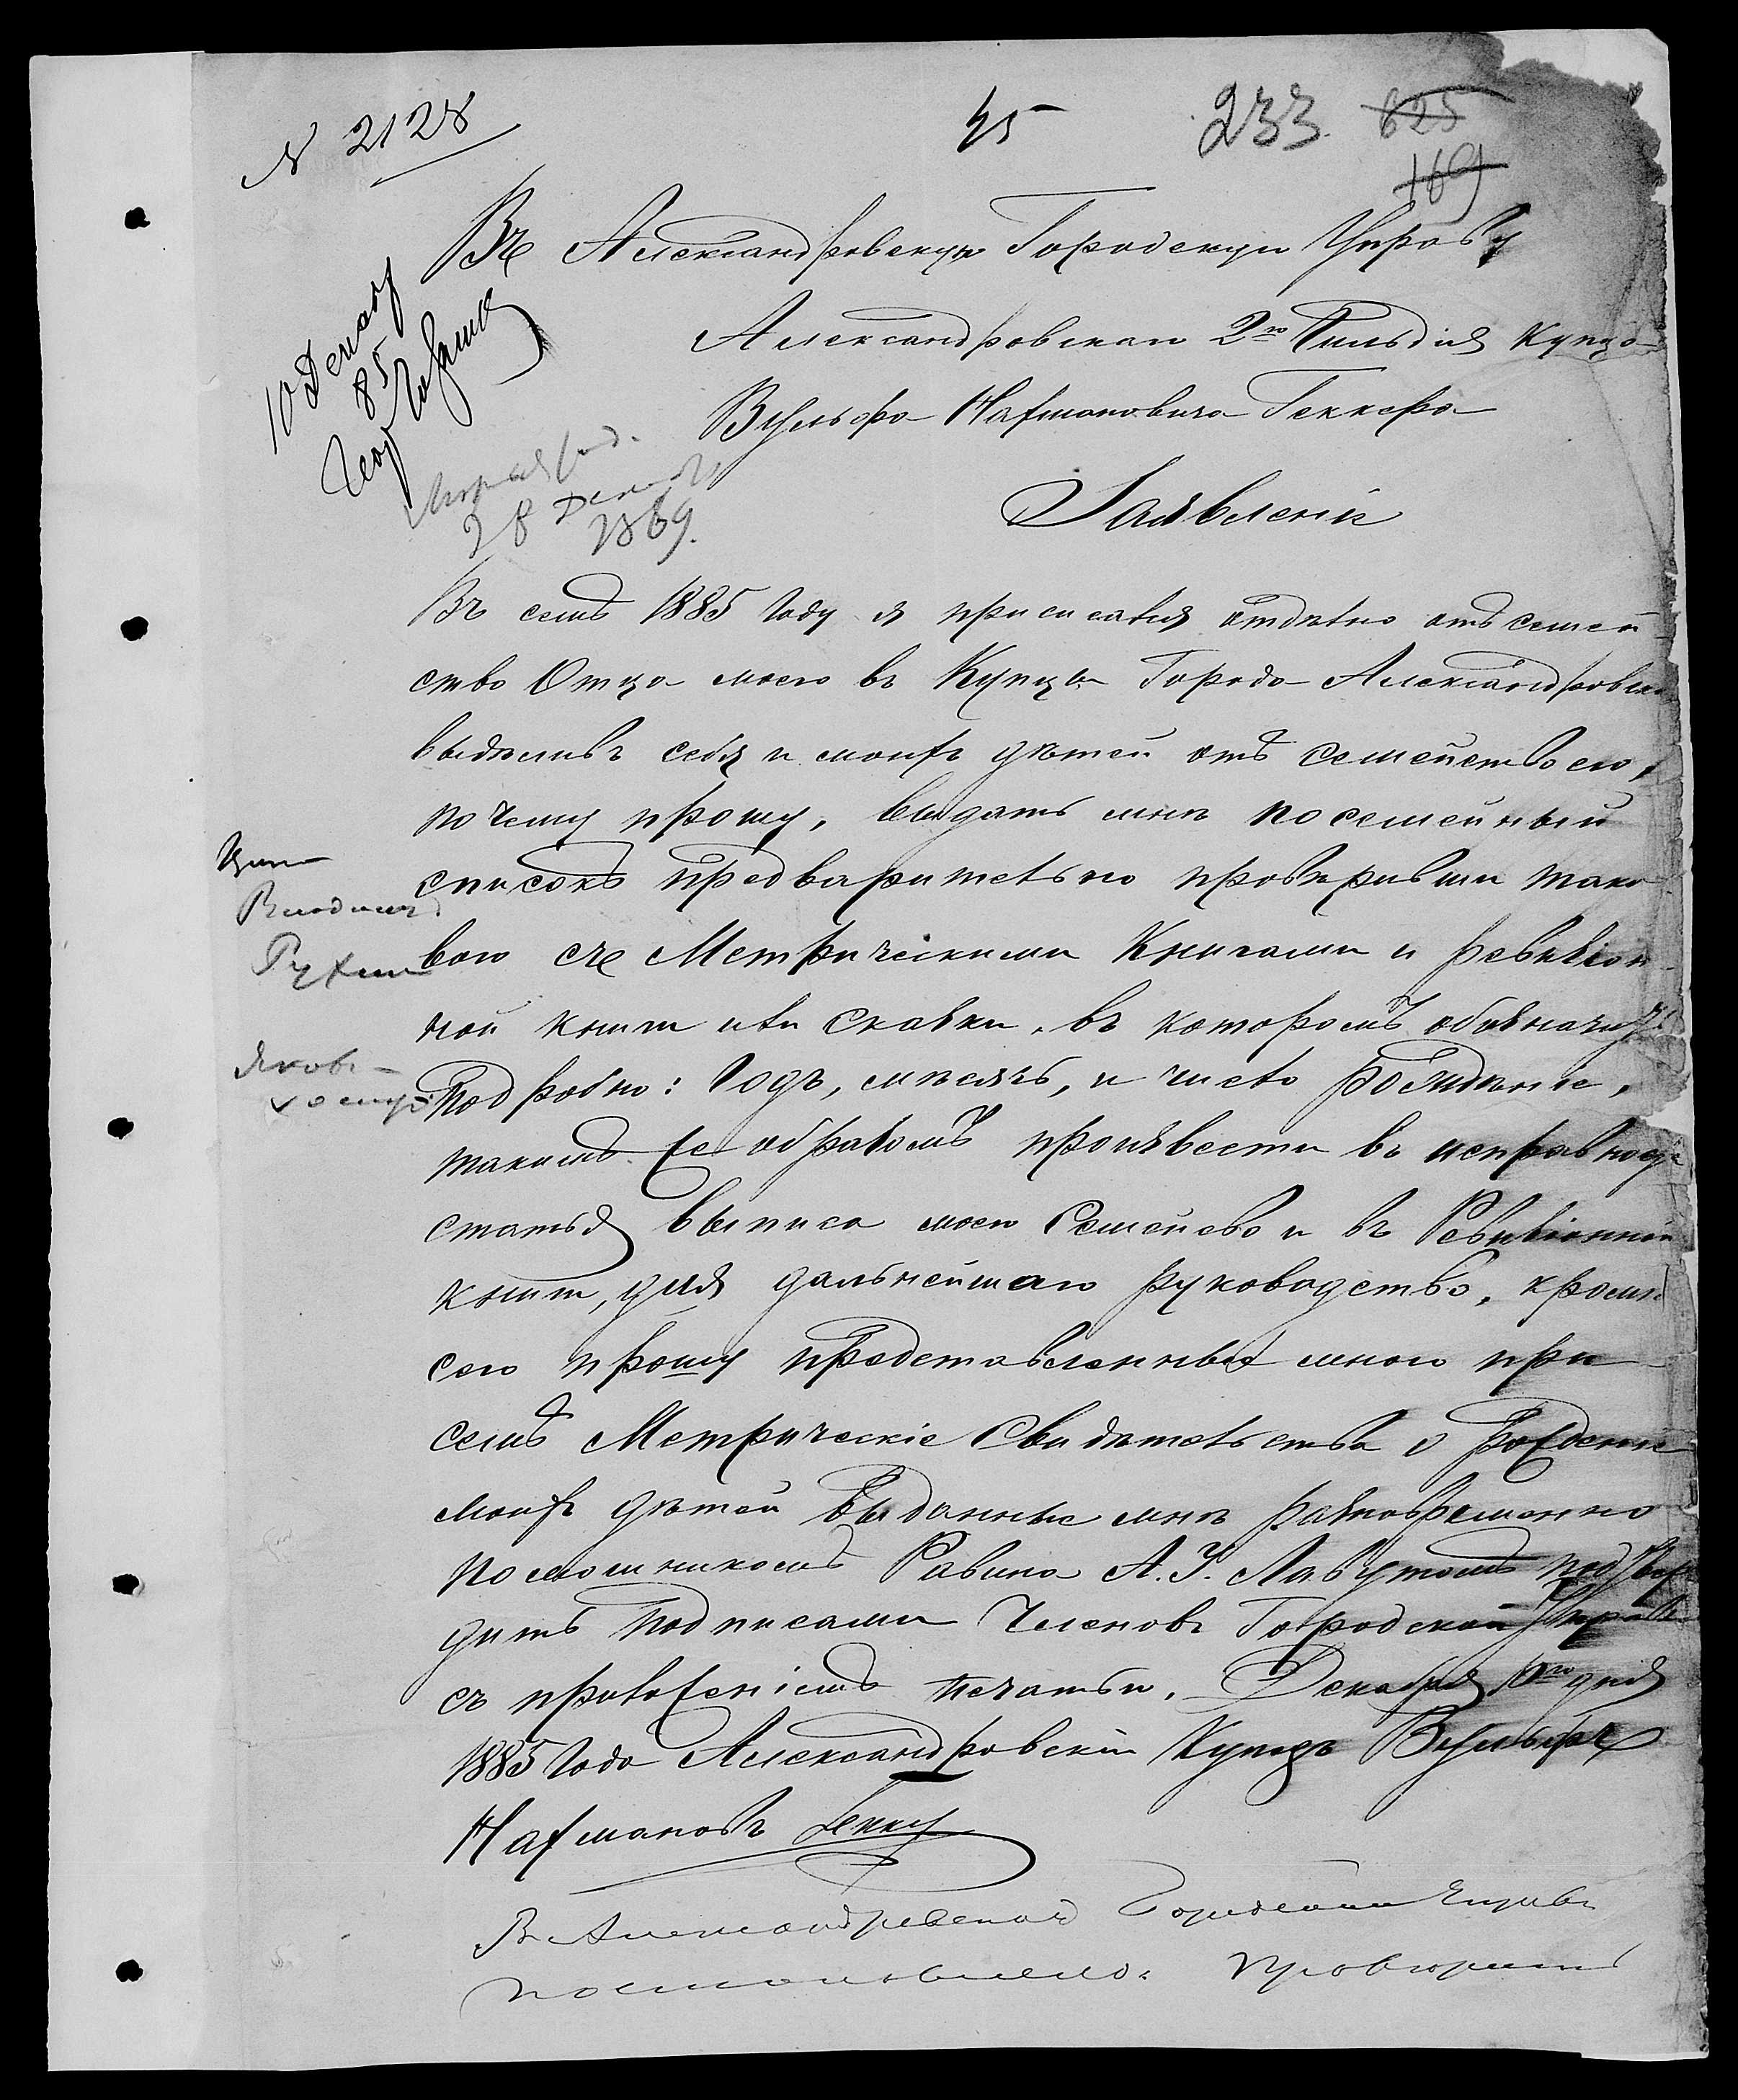 № 2128
45
233. 625
169
Въ Александровскую Городскую Управу
Александровскаго 2го Гильдія Купца
Вульфа Нахмановича Геккера
Заявленіе
10 Декабря
85
28 Декабря
1869.
Въ семъ 1885 году я приписался отдѣльно отъ семей-
ство Отца моего въ Купцы Города Александровска
выдѣливъ себя и моихъ дѣтей отъ семейство его,
по чему прошу, выдать мнѣ посемейный
списокъ предварительно провѣривши тако-
вого съ Метрическими Книгами и ревизіон-
ной книги или сказки, въ которомъ обозначить
подробно: годъ, мѣсяцъ, и число рожденіе,
такимъ же образомъ произвести въ исправность
статья выписа моего Семейсво и въ Ревизіонной
книги, для дальнейшаго руководство, кромѣ
сего прошу представленныя мною при
семъ Метрическіе Свидѣтельства о рожденіи
моихъ дѣтей выданные мнѣ разновременно
помошникомъ Равина А. У. Лавутомъ подтвер
дить подписами Членовъ Городской Управы
съ приложеніемъ печатьи. Декабря 10го дня
1885 года Александровскій Купецъ Вульфъ
Нахмановъ Геккер
Рухля
Яковъ
В Александровской Городской Управѣ
постановлено: провѣрить